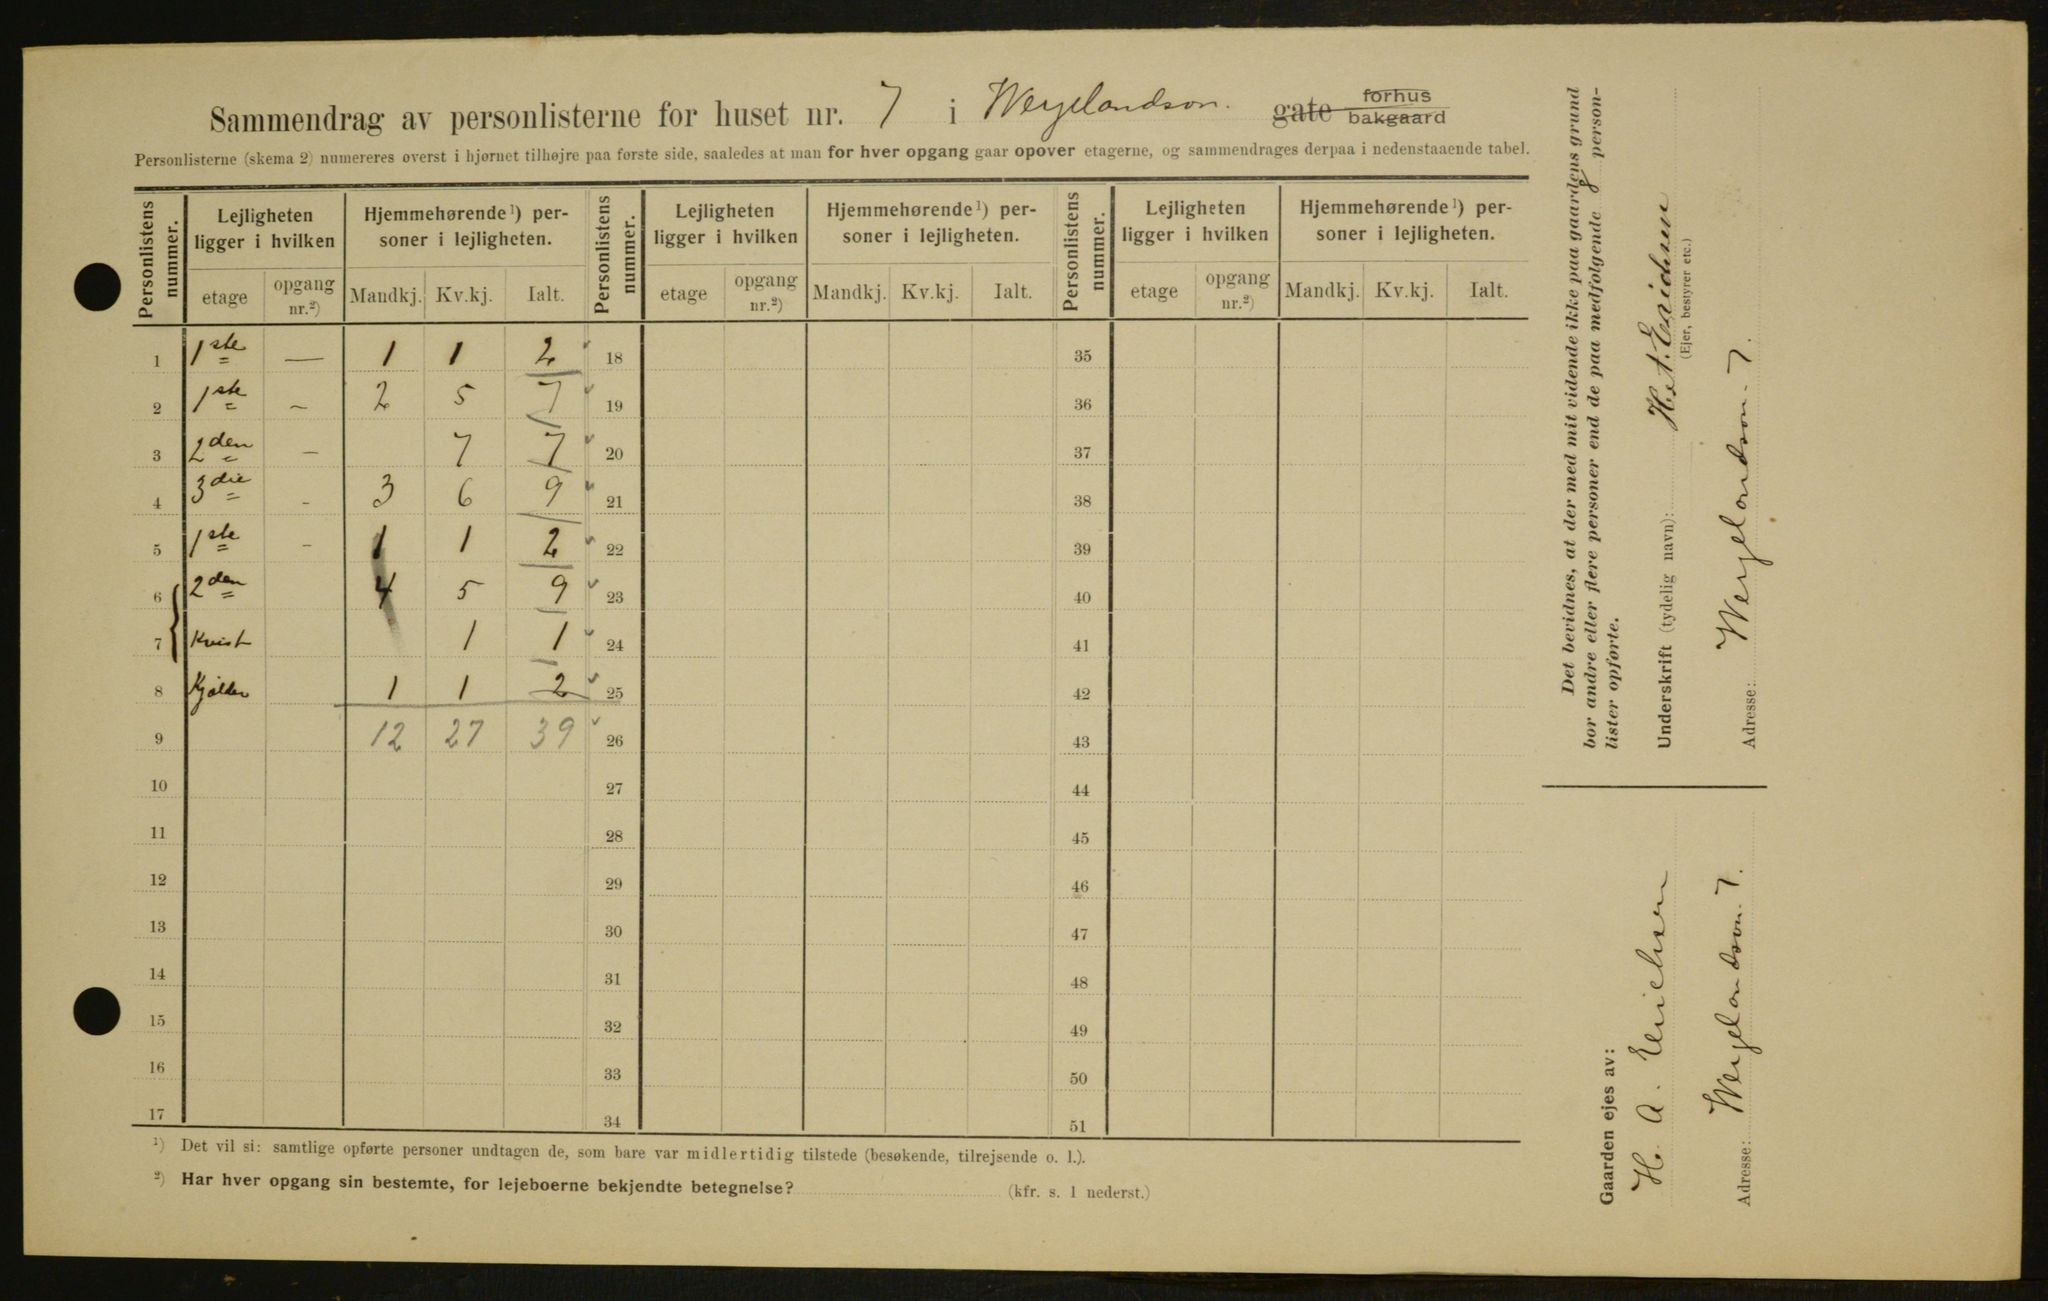 Sammendrag av personlisterne for huset nr. 7 i Wergelandsvn. gate forhus bakgaard
Personlisterne (skema 2) numereres øverst i hjørnet tilhøjre paa første side, saaledes at man for hver opgang gaar opover etagerne, og sammendrages derpaa i nedenstaaende tabel.
Personlistens nummer. Lejligheten ligger i hvilken Hjemmehørende ¹) personer i lejligheten. Personlistens nummer. Lejligheten ligger i hvilken Hjemmehørende ¹) personer i lejligheten. Personlistens nummer. Lejligheten ligger i hvilken Hjemmehørende ¹) personer i lejligheten.
etage opgang nr.²) Mandkj. Kv.kj. Ialt. etage opgang nr.²) Mandkj. Kv.kj. Ialt. etage opgang nr.²) Mandkj. Kv.kj. Ialt.
1 1ste — 1 1 2 18 35
2 1ste – 2 5 7 19 36
3 2den – 7 7 20 37
4 3die – 3 6 9 21 38
5 1ste – 1 1 2 22 39
6 2den 4 5 9 23 40
7 Kvist 1 1 24 41
8 Kjælder 1 1 2 25 42
9 12 27 39 26 43
10 27 44
11 28 45
12 29 46
13 30 47
14 31 48
15 32 49
16 33 50
17 34 51
¹) Det vil si: samtlige opførte personer undtagen de, som bare var midlertidig tilstede (besøkende, tilrejsende o. l.).
²) Har hver opgang sin bestemte, for lejeboerne bekjendte betegnelse? (kfr. s. 1 nederst.)
Det bevidnes, at der med mit vidende ikke paa gaardens grund
bor andre eller flere personer end de paa medfølgende 8 person-
lister opførte.
Underskrift (tydelig navn): H. A. Erichsen
(Ejer, bestyrer etc.)
Adresse: Wergelandsvn. 7.
Gaarden ejes av:
H. A. Erichsen
Adresse: Wergelandsvn. 7.